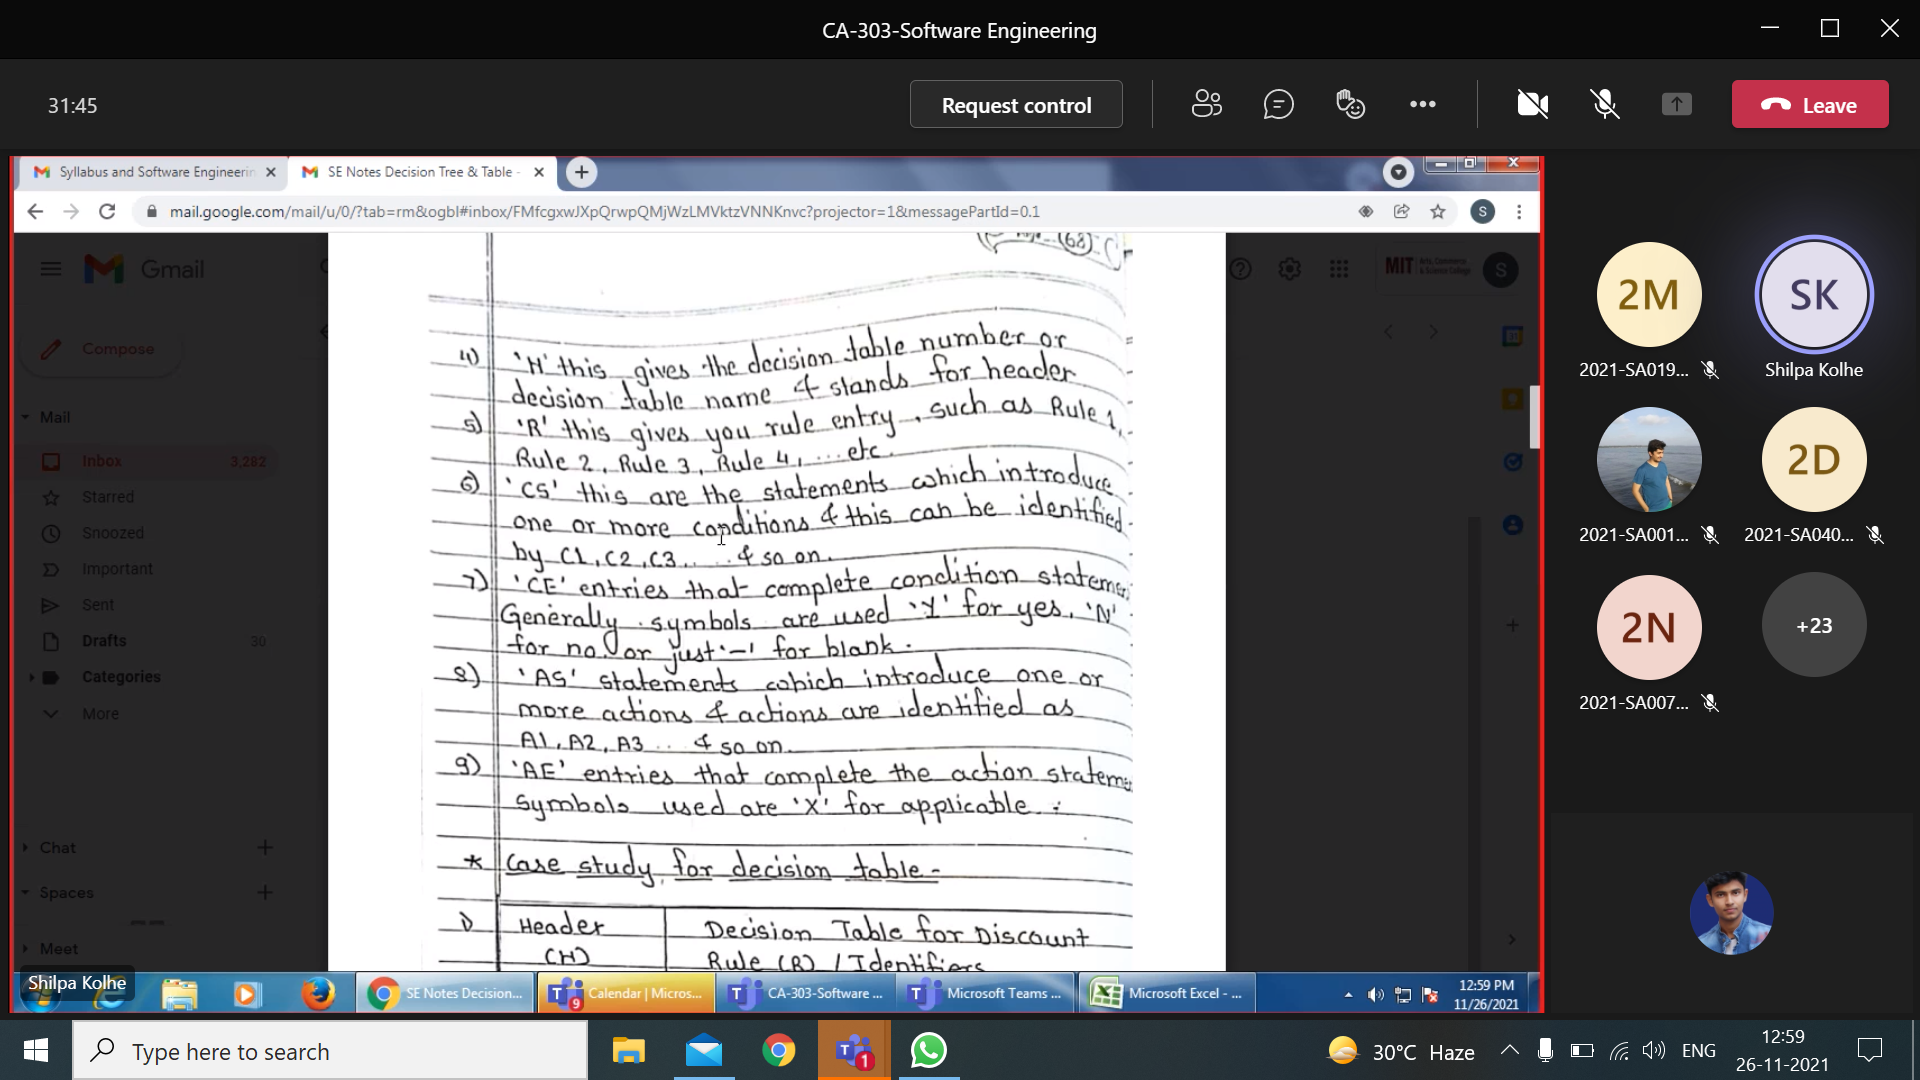 CA-303-Software Engineering
31:45
Request control
Leave
Syllabus and Software Engineerin
SE Notes Decision Tree & Table -
mail.google.com/mail/u/0/?tab=rm&ogbl#inbox/FMfcgxwJXpQrwpQMjWzLMVktzVNNKnvc?projector=1&messagePartId=0.1
S
Gmail
MIT Arts, Commerce & Science College
S
Compose
Mail
Inbox 3,282
Starred
Snoozed
Important
Sent
Drafts 30
Categories
More
Chat
Spaces
Meet
(68)
4) 'H' this gives the decision table number or
decision table name & stands for header
5) 'R' this gives you rule entry, such as Rule 1,
Rule 2, Rule 3, Rule 4, ... etc.
6) 'CS' this are the statements which introduce
one or more conditions & this can be identified
by C1, C2, C3, ... & so on.
7) 'CE' entries that complete condition stateme
Generally symbols are used 'Y' for yes, 'N'
for no, or just '-' for blank.
8) 'AS' statements which introduce one or
more actions & actions are identified as
A1, A2, A3 ... & so on.
9) 'AE' entries that complete the action stateme
symbols used are 'X' for applicable.
* Case study for decision table -
1) Header Decision Table for Discount
(H) Rule (R) / Identifiers
2M
2021-SA019...
SK
Shilpa Kolhe
2021-SA001...
2D
2021-SA040...
2N
2021-SA007...
+23
Shilpa Kolhe
SE Notes Decision...
9
Calendar | Micros...
CA-303-Software ...
Microsoft Teams ...
Microsoft Excel - ...
12:59 PM
11/26/2021
Type here to search
1
30°C Haze
ENG
12:59
26-11-2021